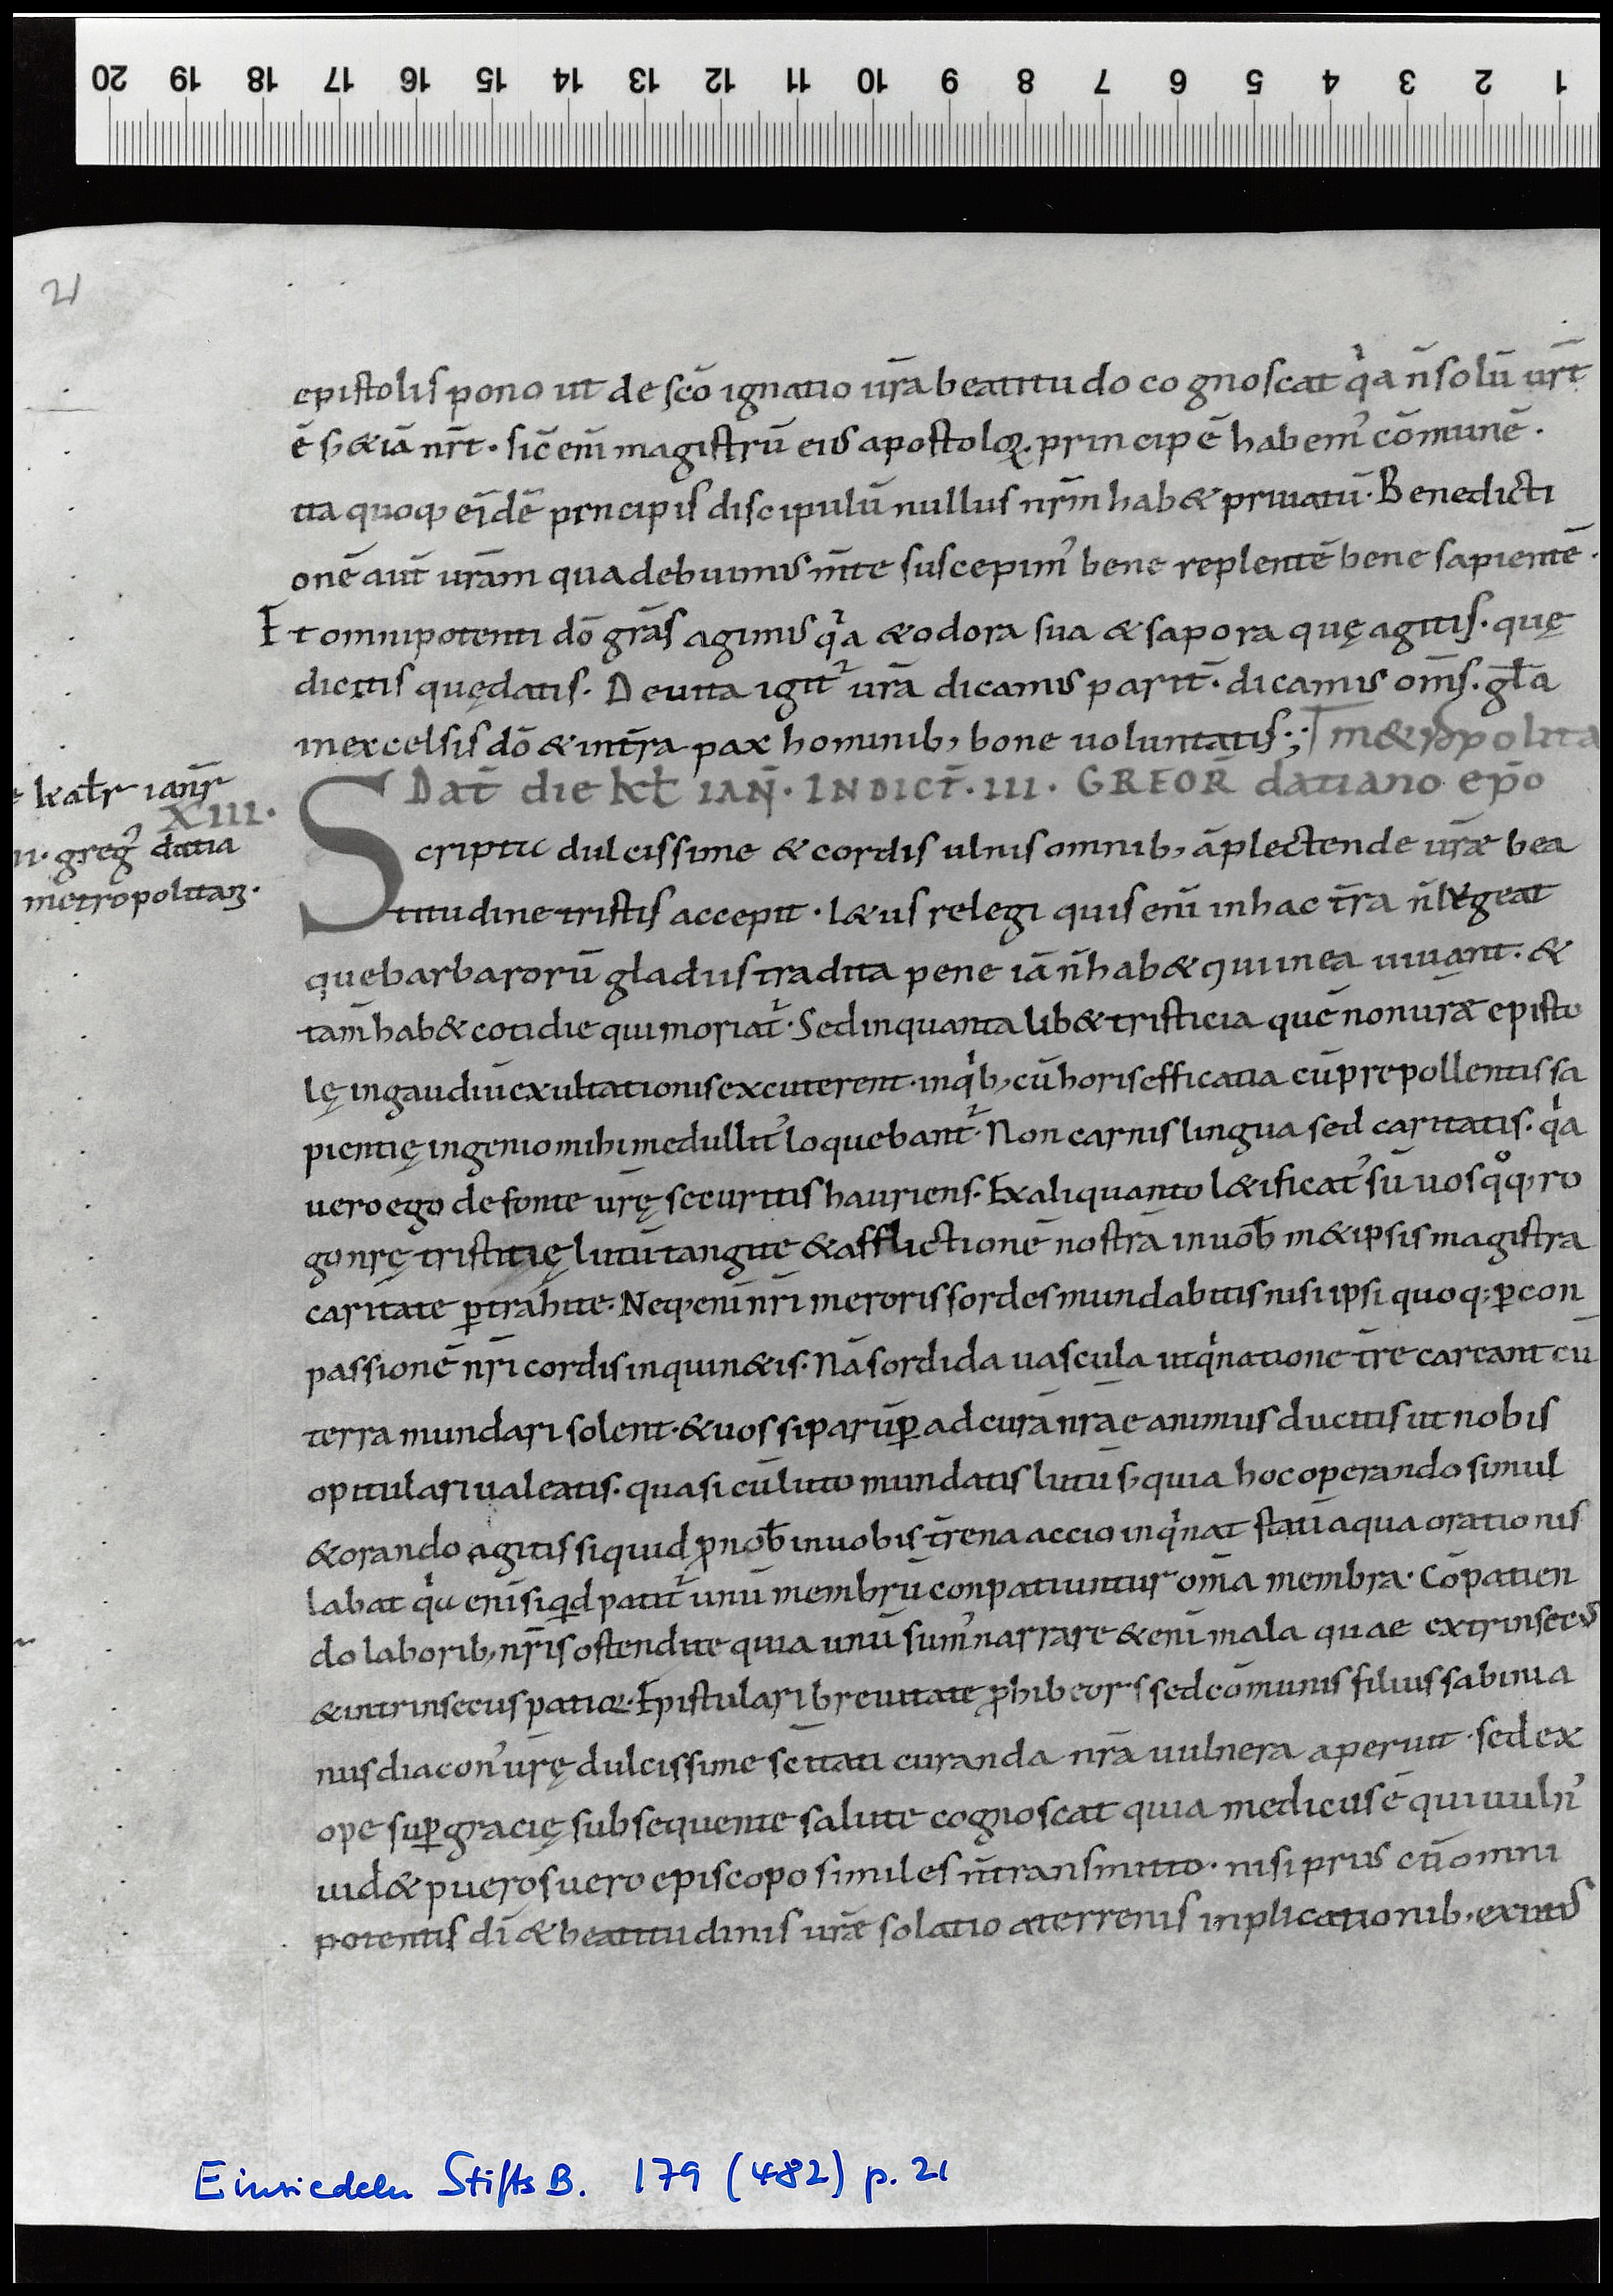 20 19 18 17 16 15 14 13 12 11 10 9 8 7 6 5 4 3 2 1
21
epistolis pono ut de sc̄o ignatio ur̄a beatitudo cognoscat qͥa n̄ solū ur̄t
ē s; & iā nr̄t · sic̄ enī magistrū eius apostoloꝝ principē habem᾽ cōmunē ·
ita quoq; eīdē prncipis discipulū nullus nr̄m hab& priuatū · Benedicti
onē aut̄ urām qua debuimus m̄te suscepim᾽ bene replentē bene sapientē ·
Et omnipotenti dō grās agimus qͥa & odora sua & sapora quę agitis · quę
dicitis quę datis · De uita igit᷑ urā dicamus parit̄ · dicamus om̄s · gl̄a
in excelsis dō & in tr̄a pax hominib; bone uoluntatis ·; m&ropolita
Dat̄ die kl̄ IAN̄ · INDICT̄ · III · GREOR̄ datiano ep̄o
kal̄r ianr̄
XIII ·
greg᾽ datia
metropolitan̄ ·
Scripta dulcissime & cordis ulnis omnib; āplectende uræ bea
titudine tristis accepit · l&us relegi quis enī in hac tr̄a n̄ lægeat
que barbarorū gladiis tradita pene iā n̄ hab& qui in ea uiuant · &
tam̄ hab& cotidie qui moriat᷑ · Sed in quanta lib& tristicia quē non uræ episto
lę in gaudiū exultationis excuterent · in qͥb; cū horis efficatia cū prepollentis sa
pientię ingenio mihi medullit᾽ loquebant᷑ · Non carnis lingua sed caritatis · qͥa
uero ego de fonte urę securitis hauriens · Ex aliquanto l&ificat᾽ sū uos qͦq; ro
go nrę tristitię lutū tangite & afflictionē nostrā in uob̄ m&ipsis magistra
caritate ꝑtrahite · Neq; enī nr̄i meroris sordes mundabitis nisi ipsi quoq; ꝑ con
passionē nr̄i cordis inquin&is · Nā sordida uascula ut qͥnatione tr̄e careant cū
terra mundari solent · & uos si parūꝑ ad curā nrae animus ducitis ut nobis
opitulari ualeatis · quasi cū luto mundatis lutū s; quia hoc operando simul
& orando agitis siquid ꝓ nob̄ in uobis tr̄ena accio inqͥnat statī aqua orationis
labat qͥa enī siqd patit᷑ unū membrū conpatiuntur om̄a membra · Cōpatien
do laborib; nr̄is ostendite quia unū sum᾽ narrare & enī mala quae extrinsecus
& intrinsecus patioꝛ · Epistulari breuitate ꝓhibeor sed cōmunis filius sabinia
nus diacon᾽ urę dulcissime sc̄itati curanda nrā uulnera aperuit · sed ex
ope suꝑ gracię subsequente salute cognoscat quia medicus ē qui uuln᾽
uid& pueros uero episcopo similes n̄ transmitto · nisi prius cū omni
potentis dī & beatitudinis uræ solatio a terrenis inplicationib; exutus
Einsiedeln StiftsB. 179 (482) p. 21